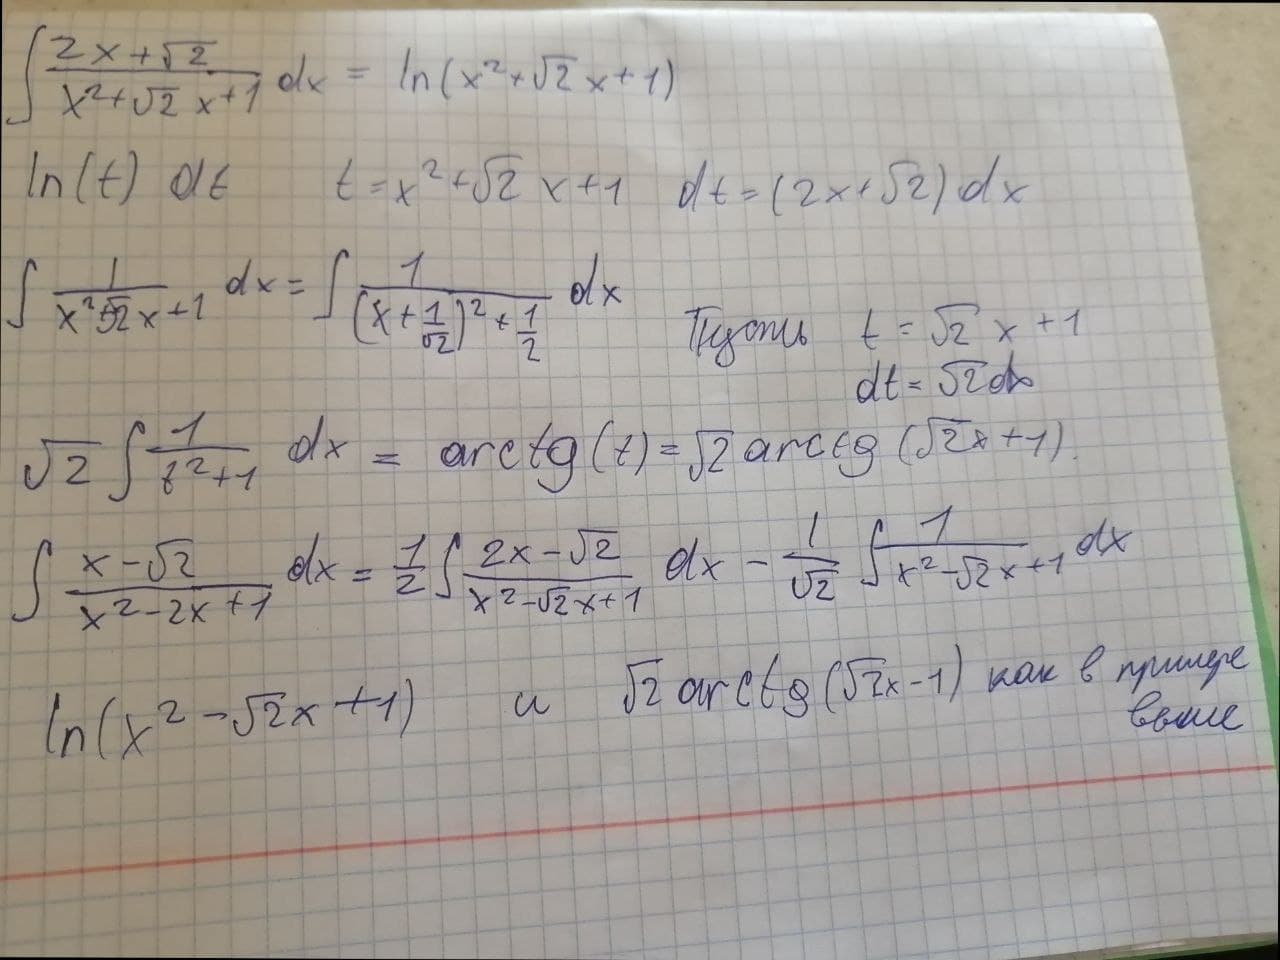 ∫ (2x+√2)/(x²+√2 x+1) dx = ln(x²+√2 x+1)
ln(t) dt t=x²+√2 x+1 dt=(2x+√2)dx
∫ 1/(x²+√2x+1) dx = ∫ 1/((x+1/√2)²+1/2) dx
Пусть t=√2 x+1
dt=√2dx
√2 ∫ 1/(t²+1) dx = arctg(t)=√2 arctg(√2x+1).
∫ (x-√2)/(x²-2x+1) dx = 1/2 ∫ (2x-√2)/(x²-√2x+1) dx - 1/√2 ∫ 1/(x²-√2x+1) dx
ln(x²-√2x+1) и √2 arctg(√2x-1) как в примере
выше